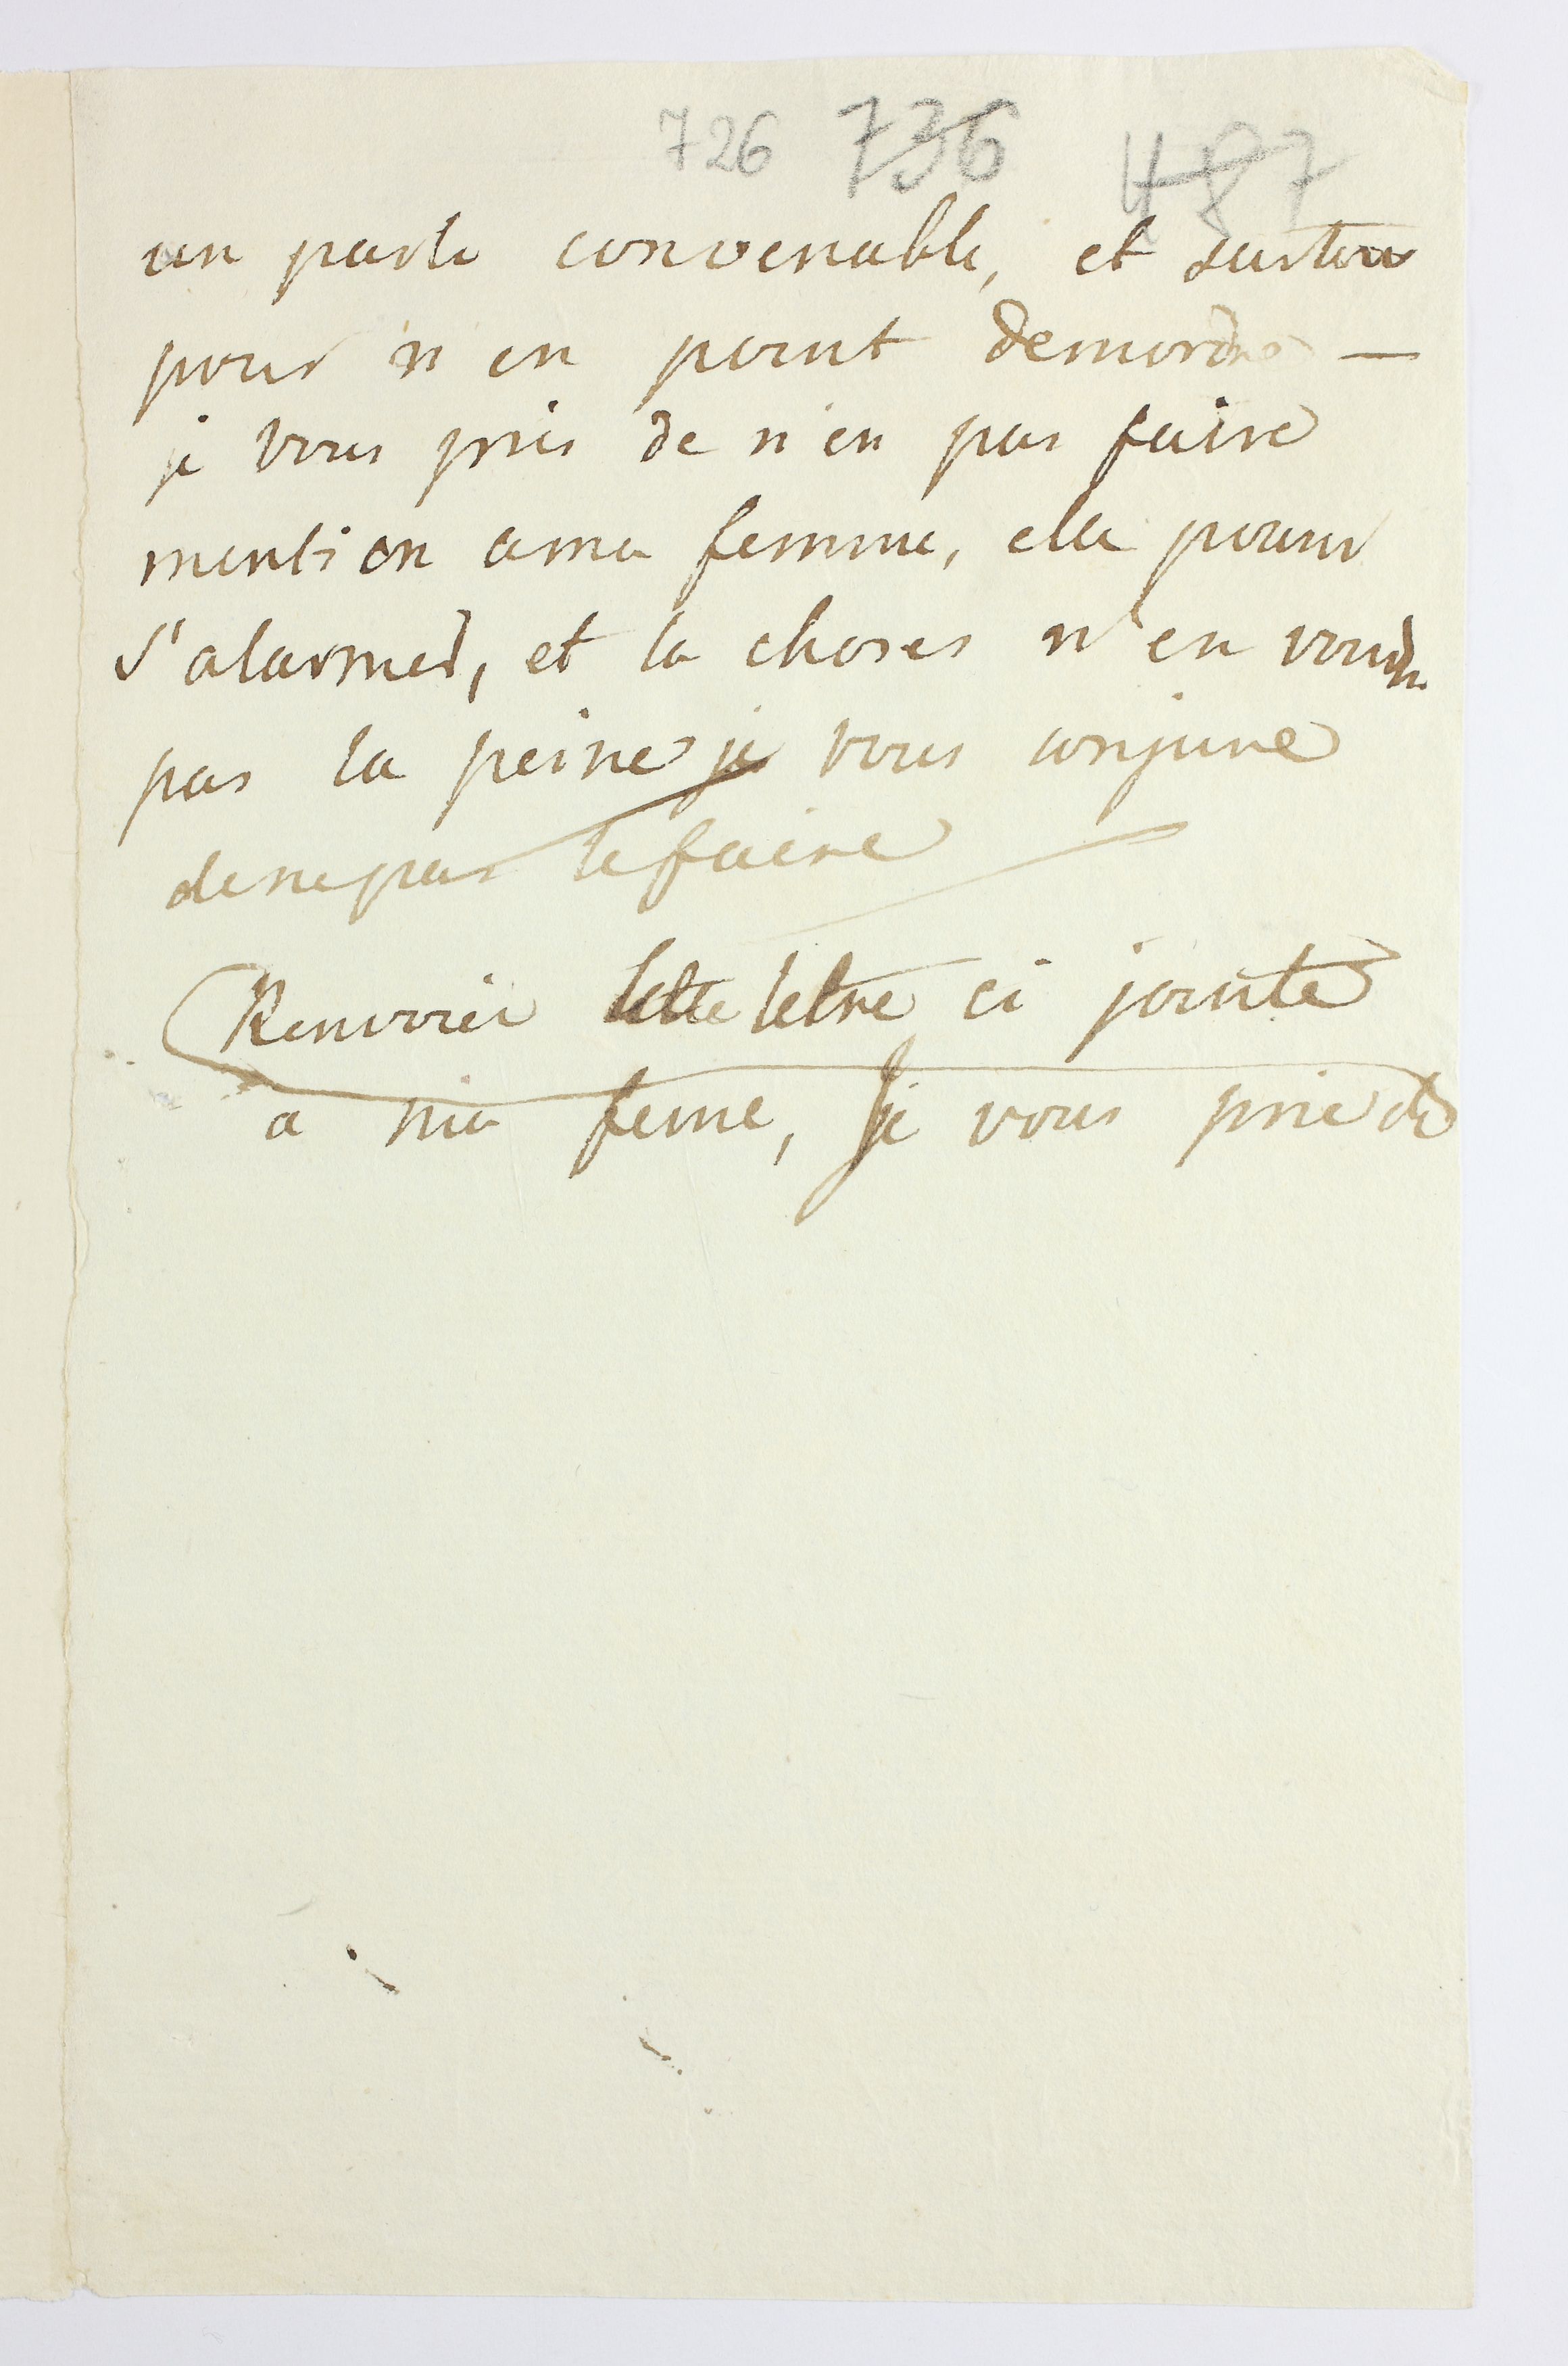 726 736 487
un parti convenable, et surtou
pour n'en point demordre —
je vous prie de n'en pas faire
mention a ma femme, ella pourr
s'alarmer, et la choses n'en voudr
pas la peine je vous conjure
de ne pas le faire
Renvoier lettre ci jointe
a ma feme, je vous prie de